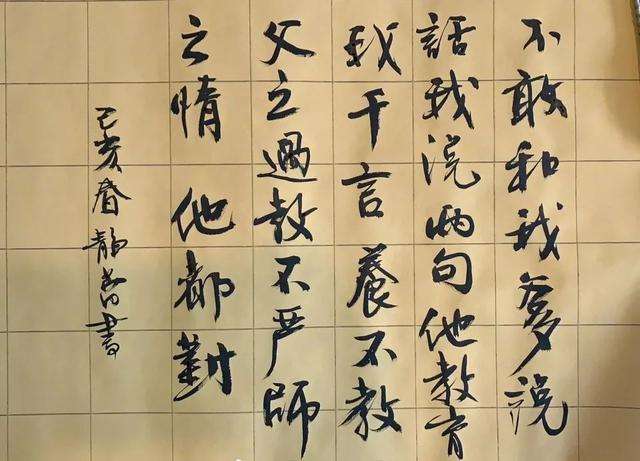 不敢和我爹说
話我说两句他教育
我千言養不教
父之過教不严師
之情他都對
己亥春静香書